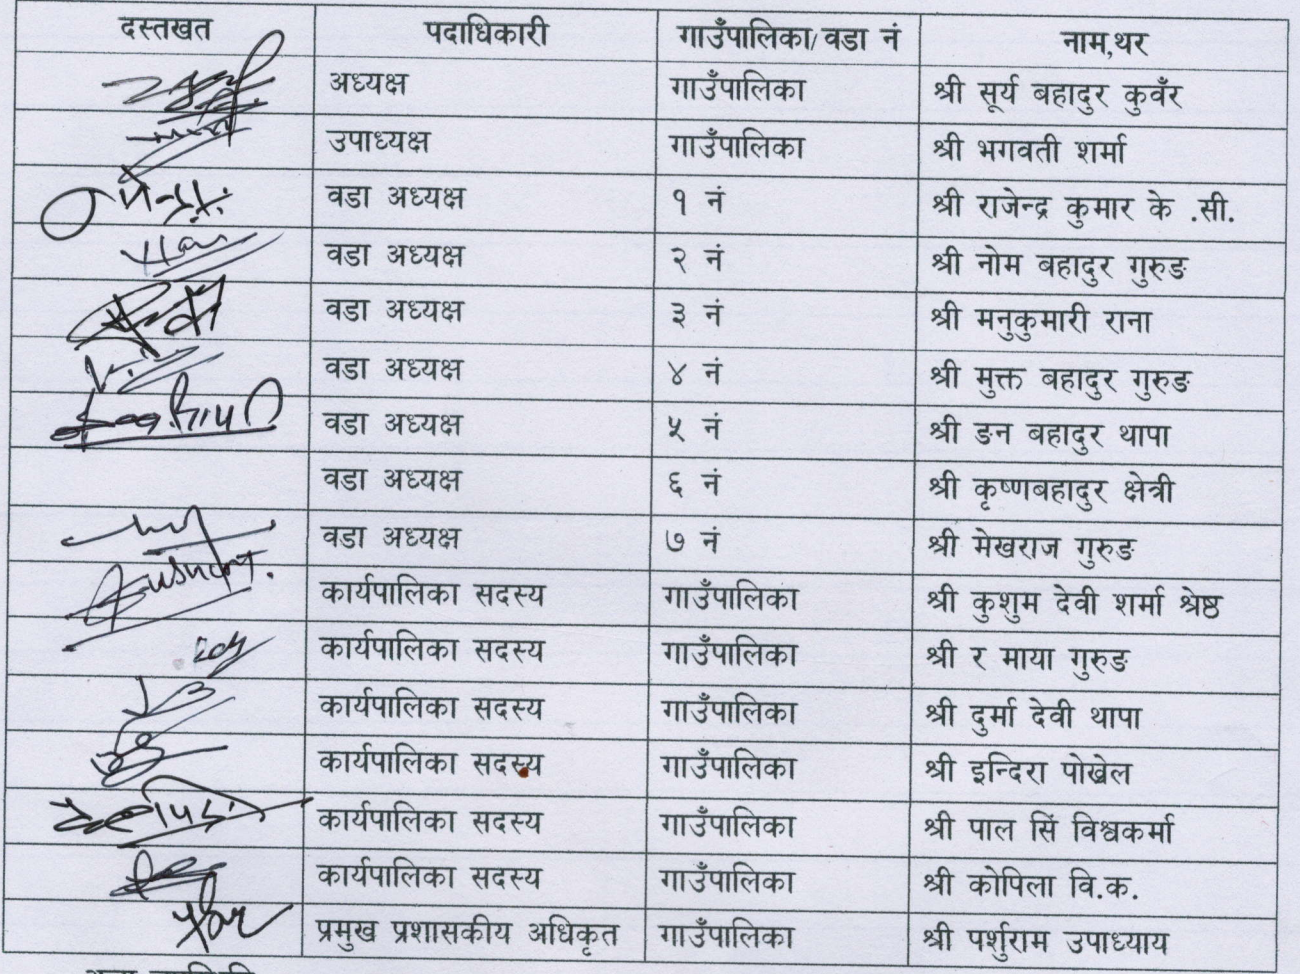 दस्तखत पदाधिकारी गाउँपालिका/वडा नं नाम,थर
अध्यक्ष गाउँपालिका श्री सूर्य बहादुर कुवँर
उपाध्यक्ष गाउँपालिका श्री भगवती शर्मा
वडा अध्यक्ष १ नं श्री राजेन्द्र कुमार के .सी.
वडा अध्यक्ष २ नं श्री नोम बहादुर गुरुङ
वडा अध्यक्ष ३ नं श्री मनुकुमारी राना
वडा अध्यक्ष ४ नं श्री मुक्त बहादुर गुरुङ
वडा अध्यक्ष ५ नं श्री ङन बहादुर थापा
वडा अध्यक्ष ६ नं श्री कृष्णबहादुर क्षेत्री
वडा अध्यक्ष ७ नं श्री मेखराज गुरुङ
कार्यपालिका सदस्य गाउँपालिका श्री कुशुम देवी शर्मा श्रेष्ठ
कार्यपालिका सदस्य गाउँपालिका श्री र माया गुरुङ
कार्यपालिका सदस्य गाउँपालिका श्री दुर्मा देवी थापा
कार्यपालिका सदस्य गाउँपालिका श्री इन्दिरा पोखेल
कार्यपालिका सदस्य गाउँपालिका श्री पाल सिं विश्वकर्मा
कार्यपालिका सदस्य गाउँपालिका श्री कोपिला वि.क.
प्रमुख प्रशासकीय अधिकृत गाउँपालिका श्री पर्शुराम उपाध्याय